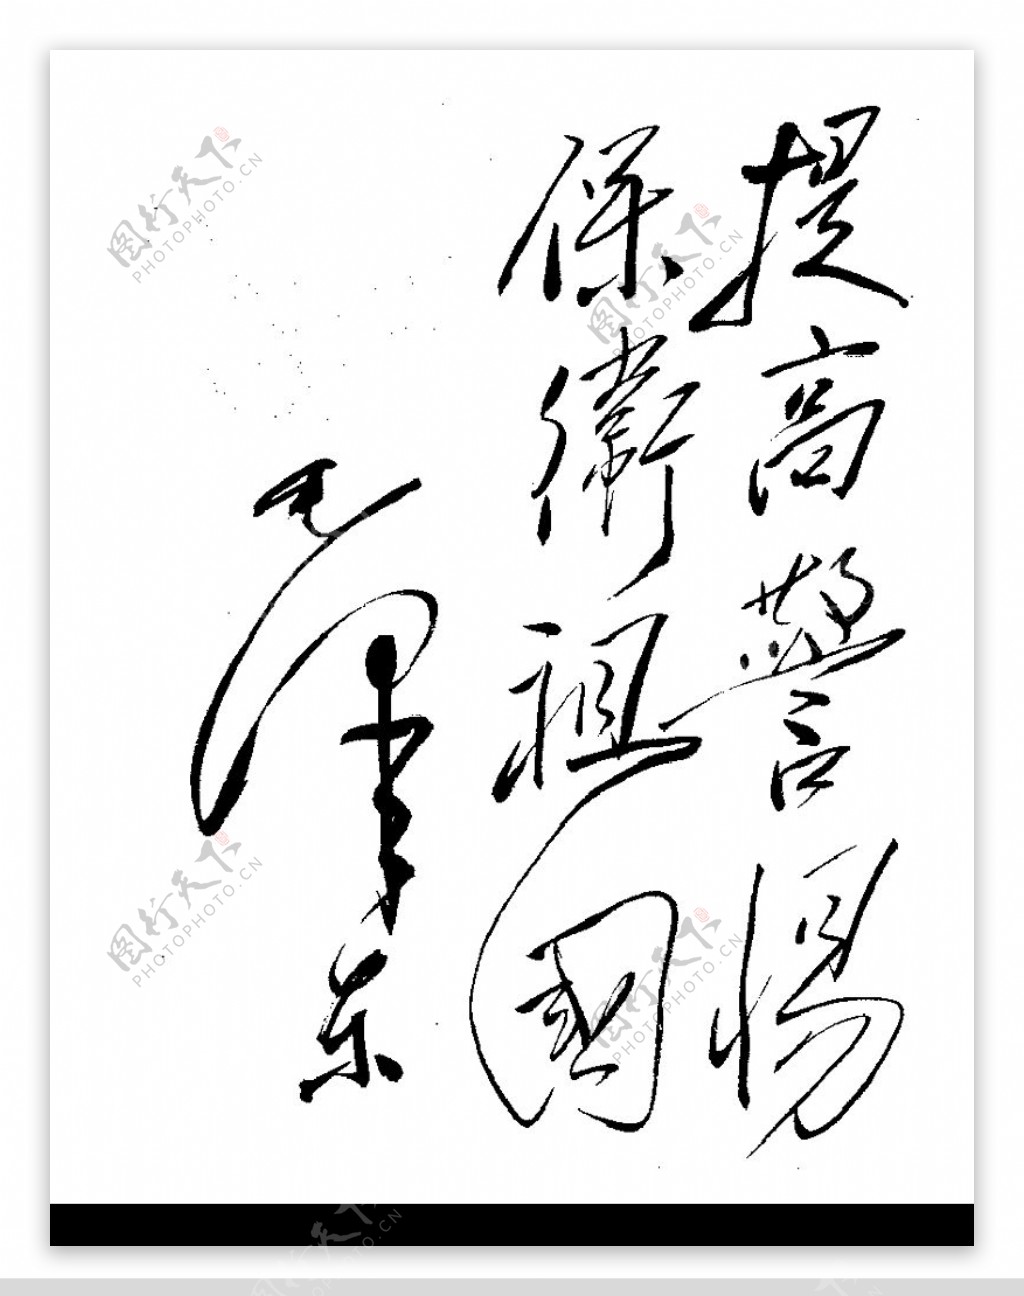 提高警惕
保衛祖國
毛泽东
图行天下
PHOTOPHOTO.CN
图行天下
PHOTOPHOTO.CN
图行天下
PHOTOPHOTO.CN
图行天下
PHOTOPHOTO.CN